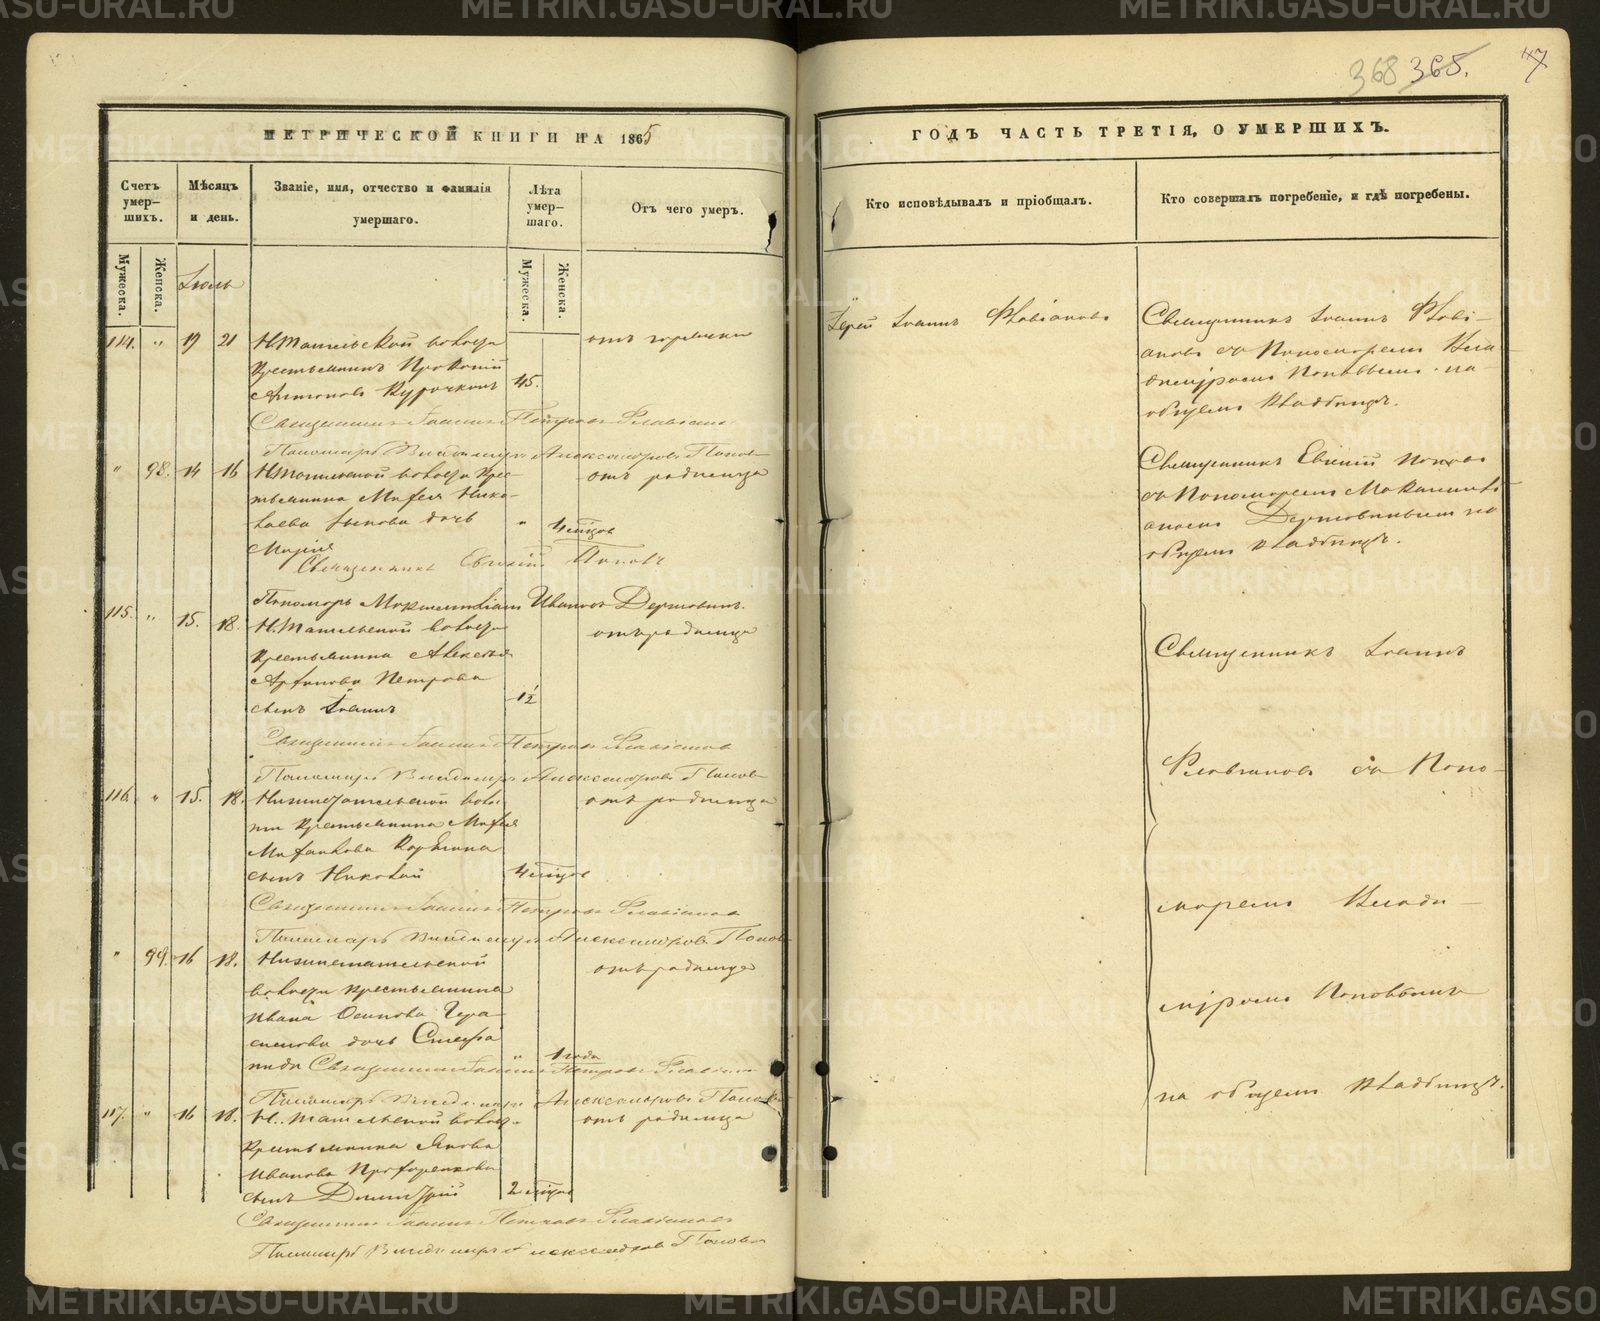 368 365. 47
МЕТРИЧЕСКОЙ КНИГИ НА 1865
ГОДЪ ЧАСТЬ ТРЕТІЯ, О УМЕРШИХЪ.
Счетъ умер-шихъ.
Мѣсяцъ и день.
Званіе, имя, отчество и фамилія умершаго.
Лѣта умер-шаго.
Отъ чего умеръ.
Кто исповѣдывалъ и пріобщалъ.
Кто совершалъ погребеніе, и гдѣ погребены.
Мужеска.
Женска.
Мужеска.
Женска.
Іюль
114. „ 19 21 Н.Тагильской волости
отъ горячки
крестьянинъ Прокопій
Антоновъ Курочкинъ 45.
Іерей Іоаннъ Флавіановъ
Священникъ Іоаннъ Флаві-
ановъ съ Пономаремъ Вла-
диміромъ Поповымъ на
общемъ кладбищѣ.
Священникъ Іоаннъ Петровъ Флавіановъ
Пономарь Владимиръ Александровъ Поповъ
„ 98. 14 16 Н.Тагильской волости крес-
отъ родимца
тьянина Матвея Нико-
лаева Зыкова дочь „ 4 мѣсяцов
Марія
Священникъ Евгеній Поповъ
съ Пономаремъ Максимилі-
аномъ Держовинымъ на
общемъ кладбищѣ.
Священникъ Евгеній Поповъ
Пономарь Максимиліанъ Ивановъ Держовинъ.
115. „ 15. 18. Н.Тагильской волости
отъ родимца
крестьянина Алексея
Петрова
сынъ Іоаннъ 1 1/2
Священникъ Іоаннъ
Флавіановъ съ Поно-
маремъ Влади-
міромъ Поповымъ
на общемъ кладбищѣ.
Священникъ Іоаннъ Петровъ Флавіановъ
Пономарь Владимиръ Александровъ Поповъ
116. „ 15. 18. Нижнетагильской волос-
отъ родимца
ти крестьянина Матвея
сынъ Николай 4 мѣсяцов
Священникъ Іоаннъ Петровъ Флавіановъ
Пономарь Владимиръ Александровъ Поповъ
„ 99. 16 18. Нижнетагильской
отъ родимца
волости крестьянина
Ивана Осипова Гера-
симова дочь Стефа-
нида „ 1 года
Священникъ Іоаннъ Петровъ Флавіановъ
Пономарь Владимиръ Александровъ Поповъ
117. „ 16 18. Н. Тагильской волос.
отъ родимца
крестьянина Якова
Иванова
сынъ Димитрій 2 мѣсяцов
Священникъ Іоаннъ Петровъ Флавіановъ
Пономарь Владимиръ Александровъ Поповъ
METRIKI.GASO-URAL.RU